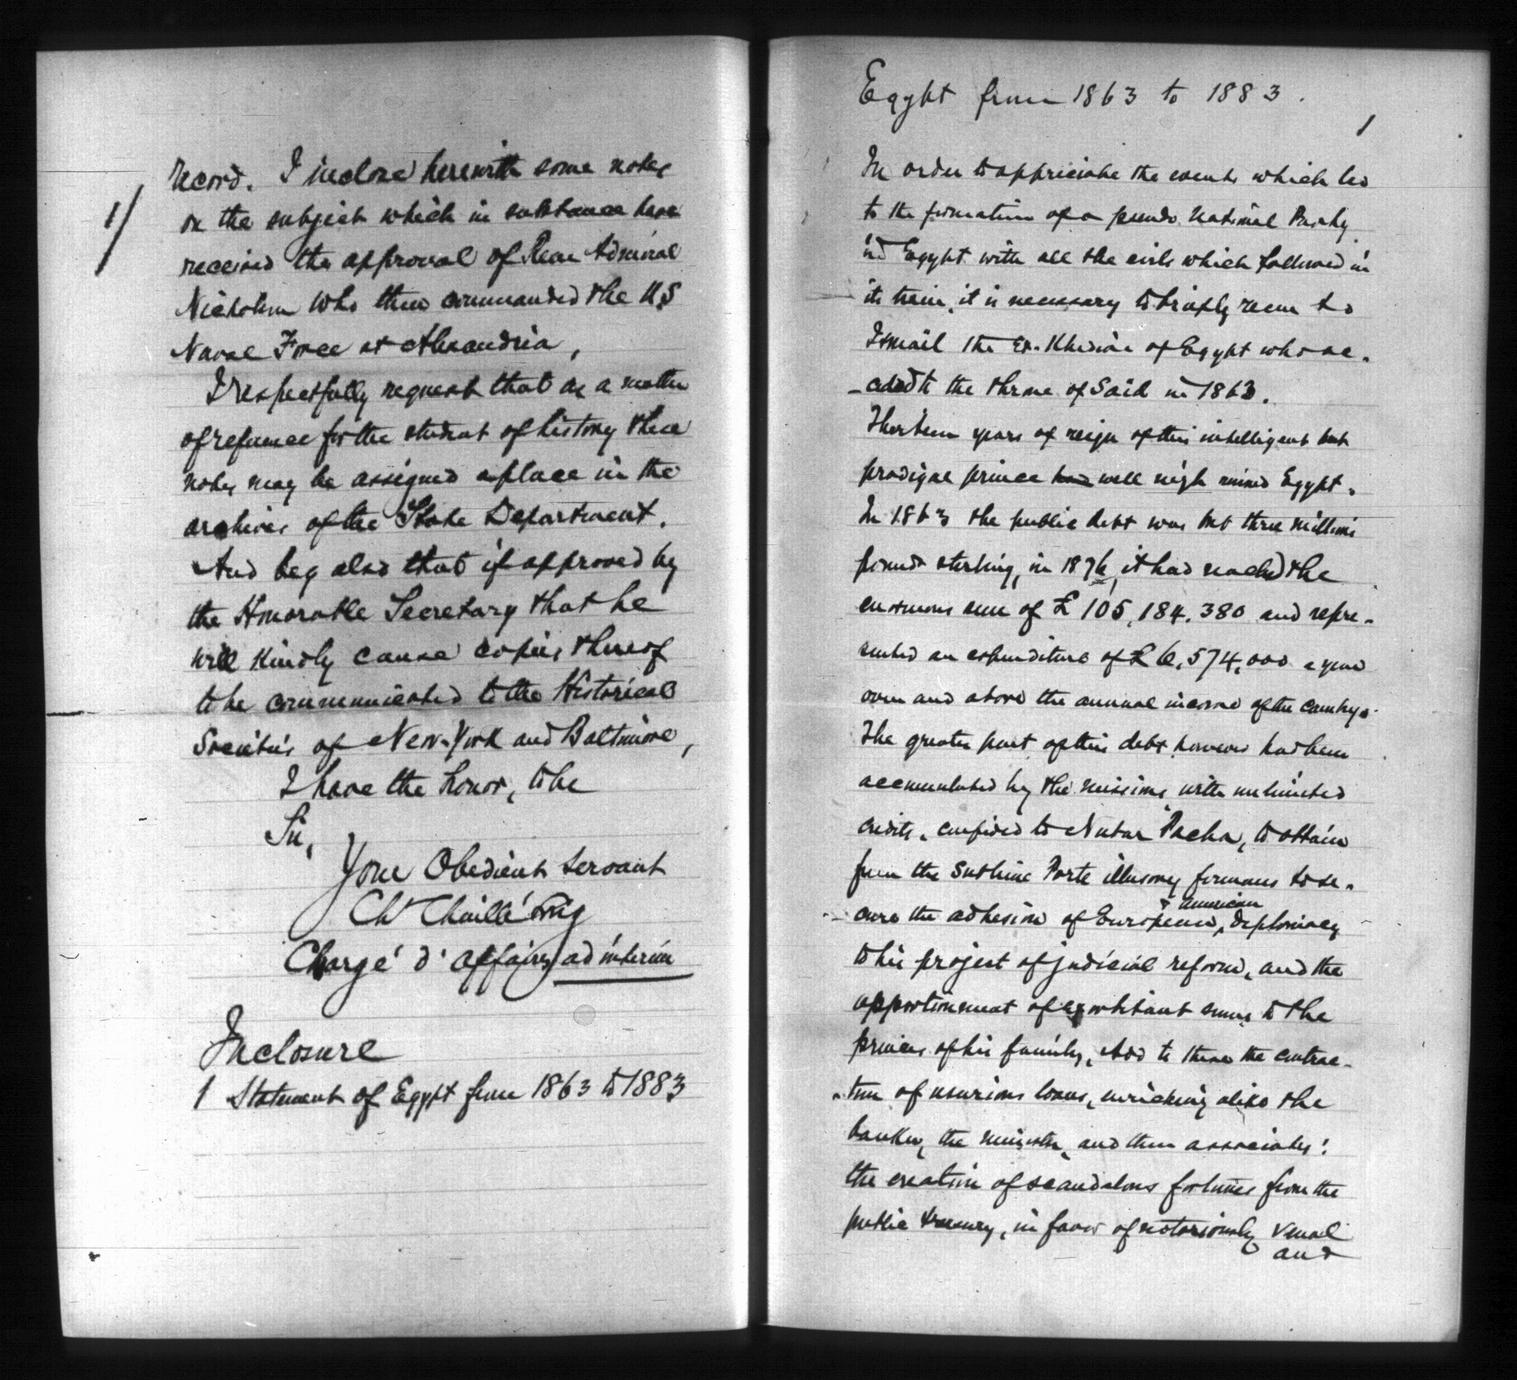 record. I inclose herewith some notes
1/
on the subject which in substance have
received the approval of Rear Admiral
Nicholson who then commanded the U.S
Naval Force at Alexandria,
I respectfully request that as a matter
of refernce for the student of history these
notes may be assigned a place in the
archives of the State Department.
And beg also that if approved by
the Honorable Secretary that he
will kindly cause copies thereof
to be communicated to the Historical
Societies of New-York and Baltimore,
I have the honor, to be
Sir,
Your Obedient Servant
Ch Chaillé Long
Chargé d'affaires ad interim
Inclosure
1 Statement of Egypt from 1863 to 1883
Egypt from 1863 to 1883.
1
In order to appriciate the events which led
to the formation of a pseudo National Party
in Egypt with all the evils which followed in
its train, it is necessary to briefly recur to
Ismail the Ex-Khedive of Egypt who ac-
-ceded to the throne of Said in 1863.
Thirteen years of reign of this intelligent but
prodigal prince had well nigh ruined Egypt.
In 1863 the public debt was but three millions
pounds sterling, in 1876, it had reached the
enormous sum of £105,184.380 and repre-
sented an expenditure of £6,574,000 a year
over and above the annual income of the country.
The greater part of this debt however had been
accumulated by the missions with unlimited
credits, confided to Nubar Pacha, to obtain
from the Sublime Porte illusory firmans to se-
& American
cure the adhesion of European, diplomacy
to his project of judicial reform, and the
apportionment of exorbitant sums to the
princes of his family, Add to these the contrac-
-tion of usurious loans, enriching alike the
banker, the minister, and their associates:
the creation of scandalous fortunes from the
public treasury, in favor of notoriously venal
and